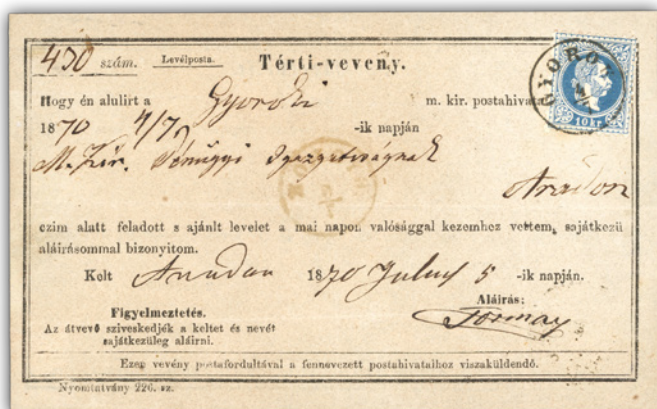 430 szám. Levélposta. Térti-vevény.
GYOROK
10 kr
Hogy én alulirt a Gyoroki m. kir. postahivat
1870 4/7 -ik napján
M. Kir. Pénűgyi Igazgatóságnak
Aradon
czim alatt feladott s ajánlt levelet a mai napon valósággal kezemhez vettem, sajátkezü
aláirásommal bizonyitom.
Kelt Aradon 1870 July 5 -ik napján.
Figyelmeztetés. Aláirás:
Az átvevő sziveskedjék a keltet és nevét Tormay
sajátkezüleg aláirni.
Ezen vevény postafordultával a fennevezett postahivatalhoz viszaküldendő.
Nyomtatvány 226. sz.